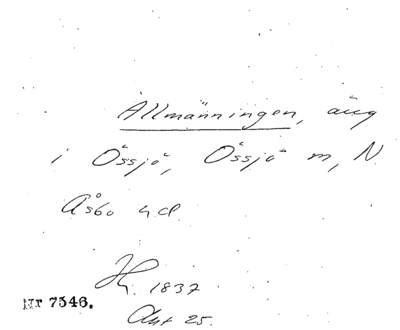 Allmänningen, äng
i Össjö, Össjö m, N.
Åsbo hd.
H. 1837
Akt 25.
Nr 7546.